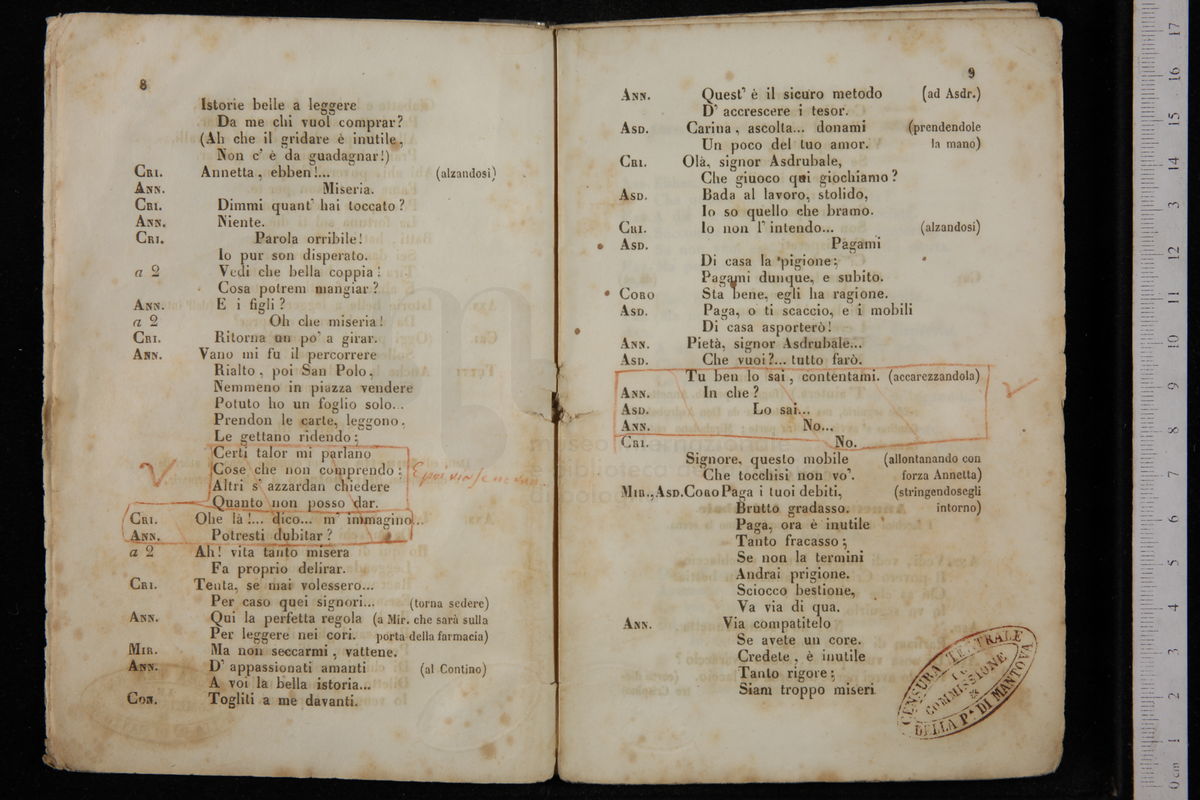 8
Istorie belle a leggere
Da me chi vuol comprar?
(Ah che il gridare è inutile,
Non c' è da guadagnar!)
CRI. Annetta, ebben!... (alzandosi)
ANN. Miseria.
CRI. Dimmi quant' hai toccato?
ANN. Niente.
CRI. Parola orribile!
Io pur son disperato.
a 2 Vedi che bella coppia!
Cosa potrem mangiar?
ANN. E i figli?
a 2 Oh che miseria!
CRI. Ritorna un po' a girar.
ANN. Vano mi fu il percorrere
Rialto, poi San Polo,
Nemmeno in piazza vendere
Potuto ho un foglio solo..
Prendon le carte, leggono,
Le gettano ridendo;
Certi talor mi parlano
Cose che non comprendo:
Altri s' azzardan chiedere
Quanto non posso dar.
CRI. Ohe là!... dico... m' immagino...
ANN. Potresti dubitar?
a 2 Ah! vita tanto misera
Fa proprio delirar.
CRI. Tenta, se mai volessero...
Per caso quei signori... (torna sedere)
ANN. Qui la perfetta regola (a Mir. che sarà sulla
Per leggere nei cori. porta della farmacia)
MIR. Ma non seccarmi, vattene.
ANN. D' appassionati amanti (al Contino)
A voi la bella istoria...
CON. Togliti a me davanti.
9
ANN. Quest' è il sicuro metodo (ad Asdr.)
D' accrescere i tesor.
ASD. Carina, ascolta... donami (prendendole
Un poco del tuo amor. la mano)
CRI. Olà, signor Asdrubale,
Che giuoco qui giochiamo?
ASD. Bada al lavoro, stolido,
Io so quello che bramo.
CRI. Io non l' intendo... (alzandosi)
ASD. Pagami
Di casa la pigione;
Pagami dunque, e subito.
CORO Sta bene, egli ha ragione.
ASD. Paga, o ti scaccio, e i mobili
Di casa asporterò!
ANN. Pietà, signor Asdrubale...
ASD. Che vuoi?... tutto farò.
Tu ben lo sai, contentami. (accarezzandola)
ANN. In che?
ASD. Lo sai...
ANN. No...
CRI. No.
Signore, questo mobile (allontanando con
Che tocchisi non vo'. forza Annetta)
MIR., ASD. CORO Paga i tuoi debiti, (stringendosegli
Brutto gradasso. intorno)
Paga, ora è inutile
Tanto fracasso;
Se non la termini
Andrai prigione.
Sciocco bestione,
Va via di qua.
ANN. Via compatitelo
Se avete un core.
Credete, è inutile
Tanto rigore;
Siam troppo miseri
CENSURA TEATRALE
COMMISSIONE
DELLA P.ª DI MANTOVA